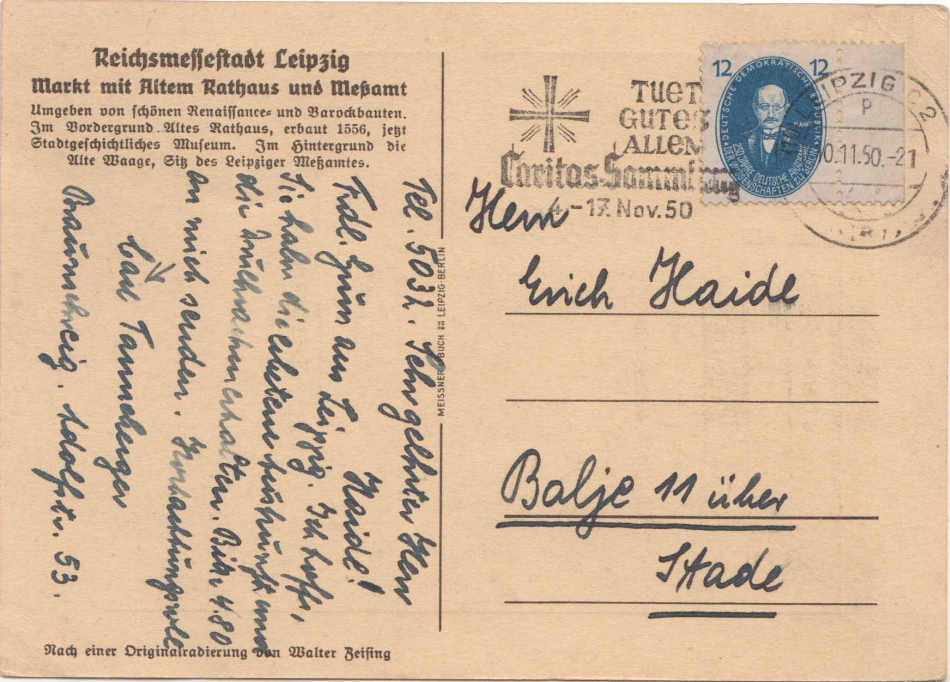 Reichsmessestadt Leipzig
Markt mit Altem Rathaus und Meßamt
Umgeben von schönen Renaissance- und Barockbauten.
Im Vordergrund Altes Rathaus, erbaut 1556, jetzt
Stadtgeschichtliches Museum. Im Hintergrund die
Alte Waage, Sitz des Leipziger Meßamtes.
Tel. 5032. Sehr geehrter Herr
Haide!
Frdl. Gruß aus Leipzig. Ich hoffe,
Sie haben die erbetene Auskunft und
die erhalten. Bitte 4.80
an mich senden. Hochachtungsvoll
Tanneberger
Braunschweig. Adolfstr. 53.
Nach einer Originalradierung von Walter Zeising
MEISSNER & BUCH LEIPZIG-BERLIN
TUET
GUTES
ALLEN
Caritas-Sammlung
4.-17. Nov. 50
12 12
DEUTSCHE DEMOKRATISCHE REPUBLIK
250 JAHRE DEUTSCHE AKADEMIE
DER WISSENSCHAFTEN ZU BERLIN
LEIPZIG C 2
P
0.11.50.-21
Herrn
Erich Haide
Balje 11 über
Stade